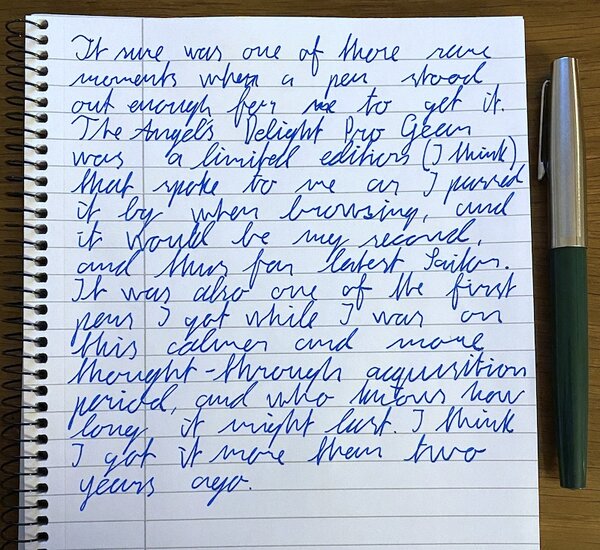 It sure was one of those rare
moments when a pen stood
out enough for me to get it.
The Angel's Delight Pro Gear
was a limited edition (I think)
that spoke to me as I passed
it by when browsing, and
it would be my second,
and thus far latest Sailor.
It was also one of the first
pens I got while I was on
this calmer and more
thought-through acquisition
period, and who knows how
long it might last. I think
I got it more than two
years ago.